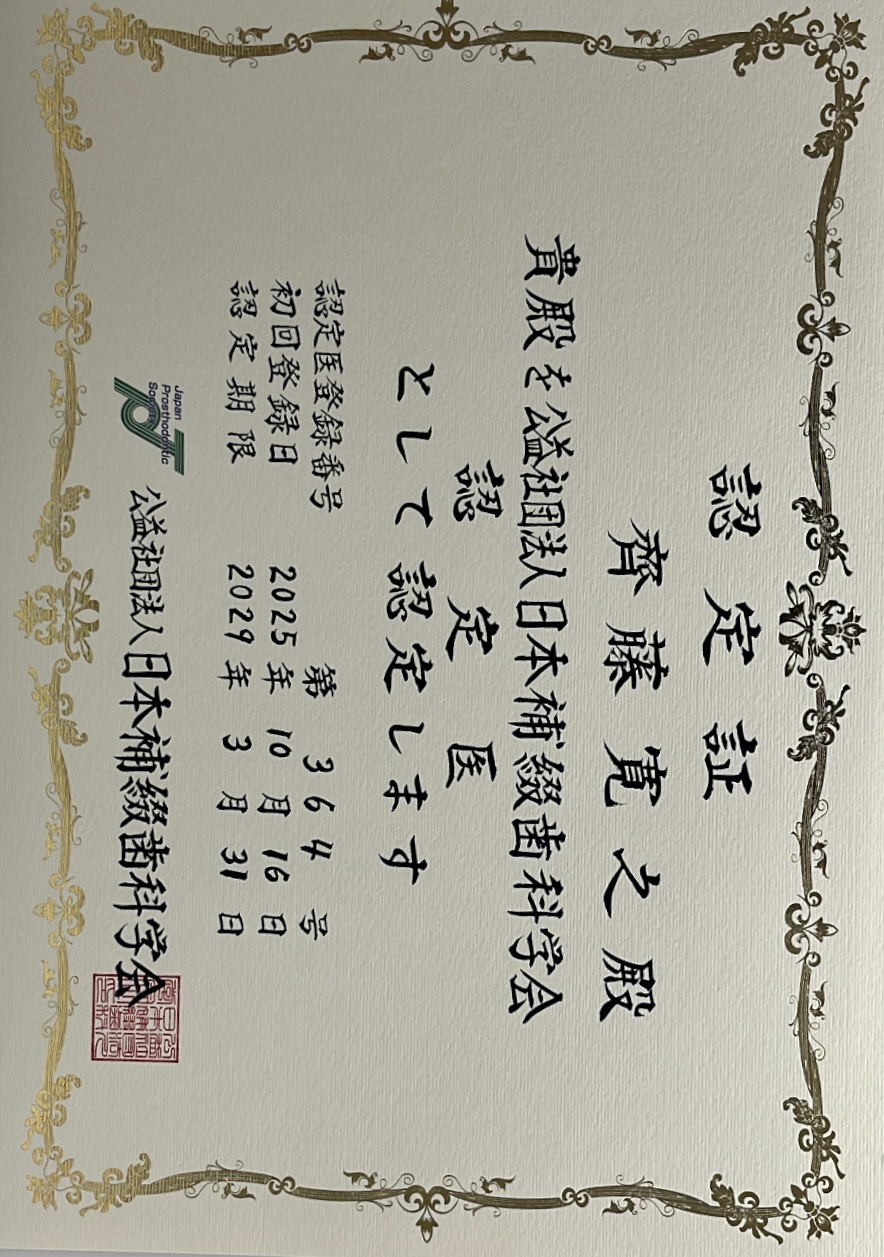 認定証
齊藤寛之殿
貴殿を公益社団法人日本補綴歯科学会
認定医
として認定します
認定医登録番号 第364号
初回登録日 2025年10月16日
認定期限 2029年3月31日
Japan
Prosthodontic
Society
公益社団法人日本補綴歯科学会